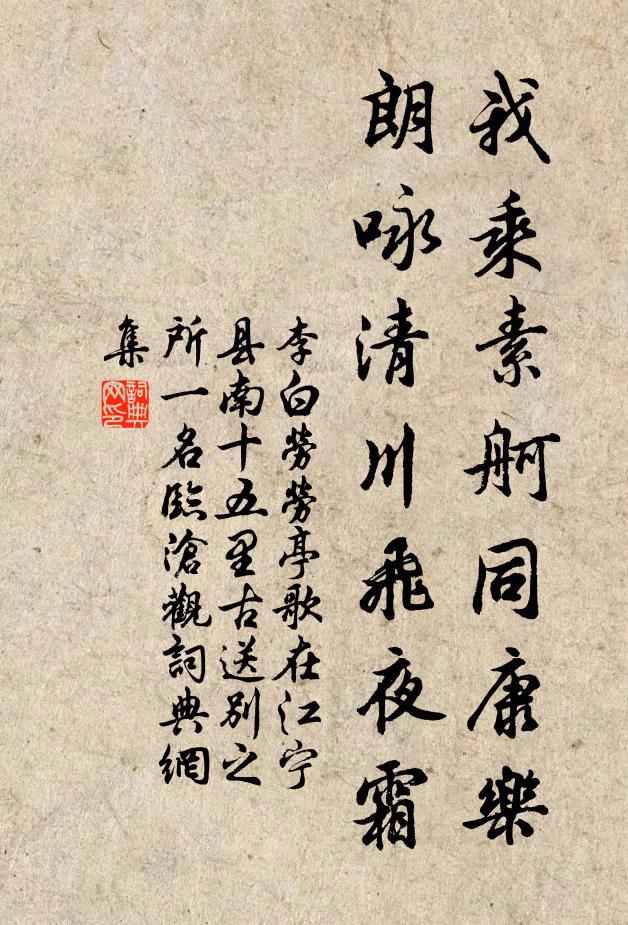 我乘素舸同康樂
朗咏清川飛夜霜
李白勞勞亭歌在江宁
县南十五里古送別之
所一名臨滄觀詞典網
集
詞典
网印